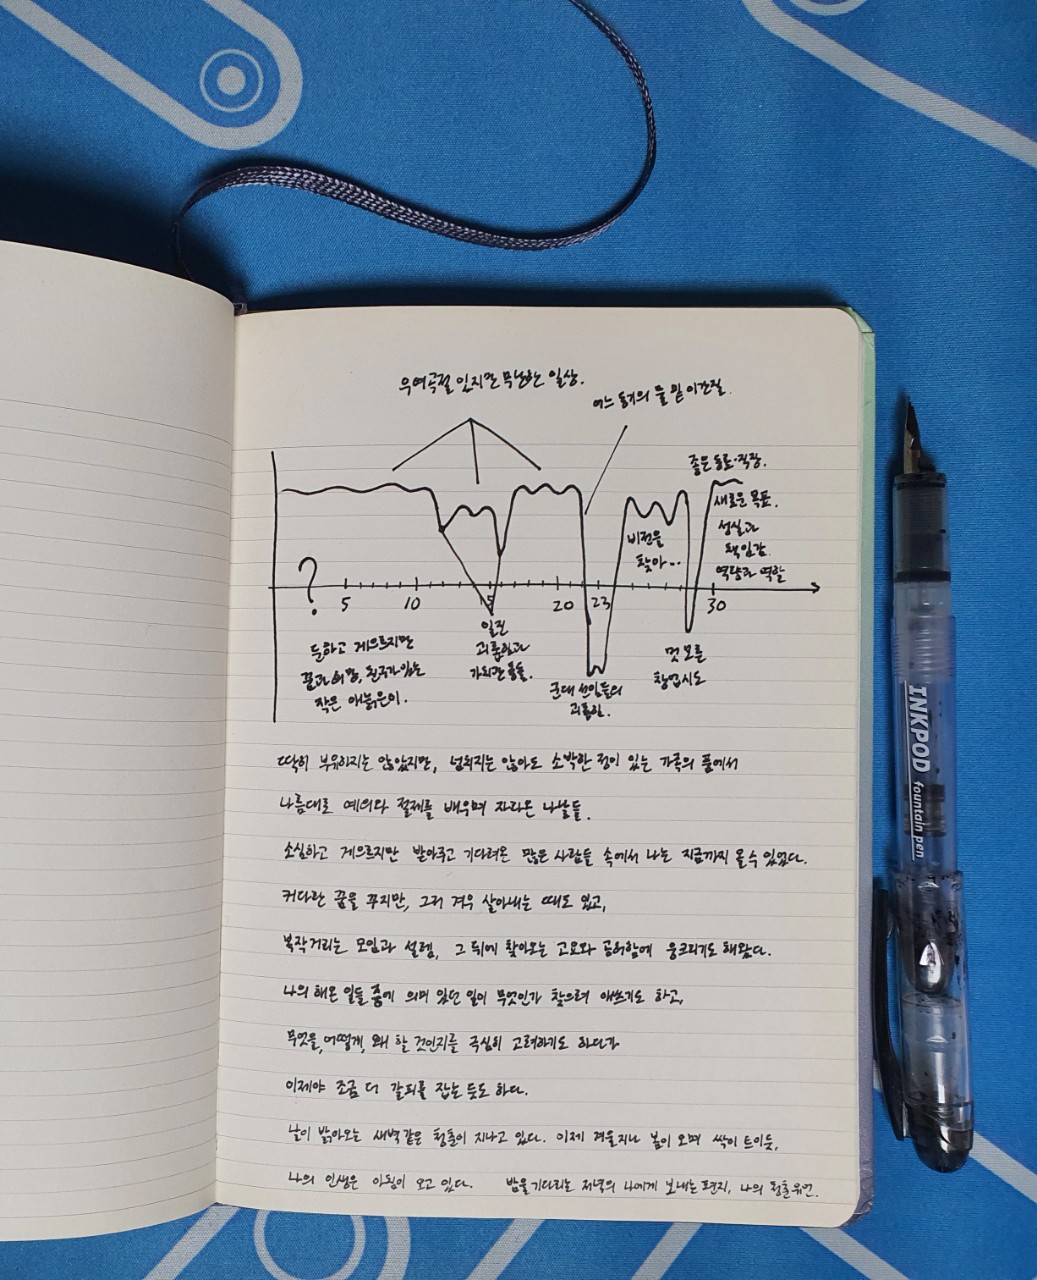 우여곡절 있지만 무난한 일상.
어느 동기의 물밑 이간질.
좋은 동료·직장.
새로운 목표.
성실과
책임감
역량과 역할
비전을
찾아...
?
5
10
15
20
23
30
둔하고 게으르지만
꿈과 희망, 친구가 있는
작은 애늙은이.
일진
괴롭힘과
가치관 충돌.
군대 선임들의
괴롭힘.
멋모를
창업시도
딱히 부유하지는 않았지만, 넘취지는 않아도 소박한 정이 있는 가족의 품에서
나름대로 예의와 절제를 배우며 자라온 나날들.
소심하고 게으르지만 받아주고 기다려온 많은 사람들 속에서 나는 지금까지 올 수 있었다.
커다란 꿈을 꾸지만, 그저 겨우 살아내는 때도 있고,
복작거리는 모임과 설렘, 그 뒤에 찾아오는 고요와 공허함에 웅크리기도 해왔다.
나의 해온 일들 중에 의미 있던 일이 무엇인가 찾으려 애쓰기도 하고,
무엇을, 어떻게, 왜 할 것인지를 극심히 고려하기도 하다가
이제야 조금 더 갈피를 잡는 듯도 하다.
날이 밝아오는 새벽 같은 청춘이 지나고 있다. 이제 겨울 지나 봄이 오며 싹이 트이듯,
나의 인생은 아침이 오고 있다. 밤을 기다리는 저녁의 나에게 보내는 편지, 나의 청춘유언.
INKPOD
fountain pen